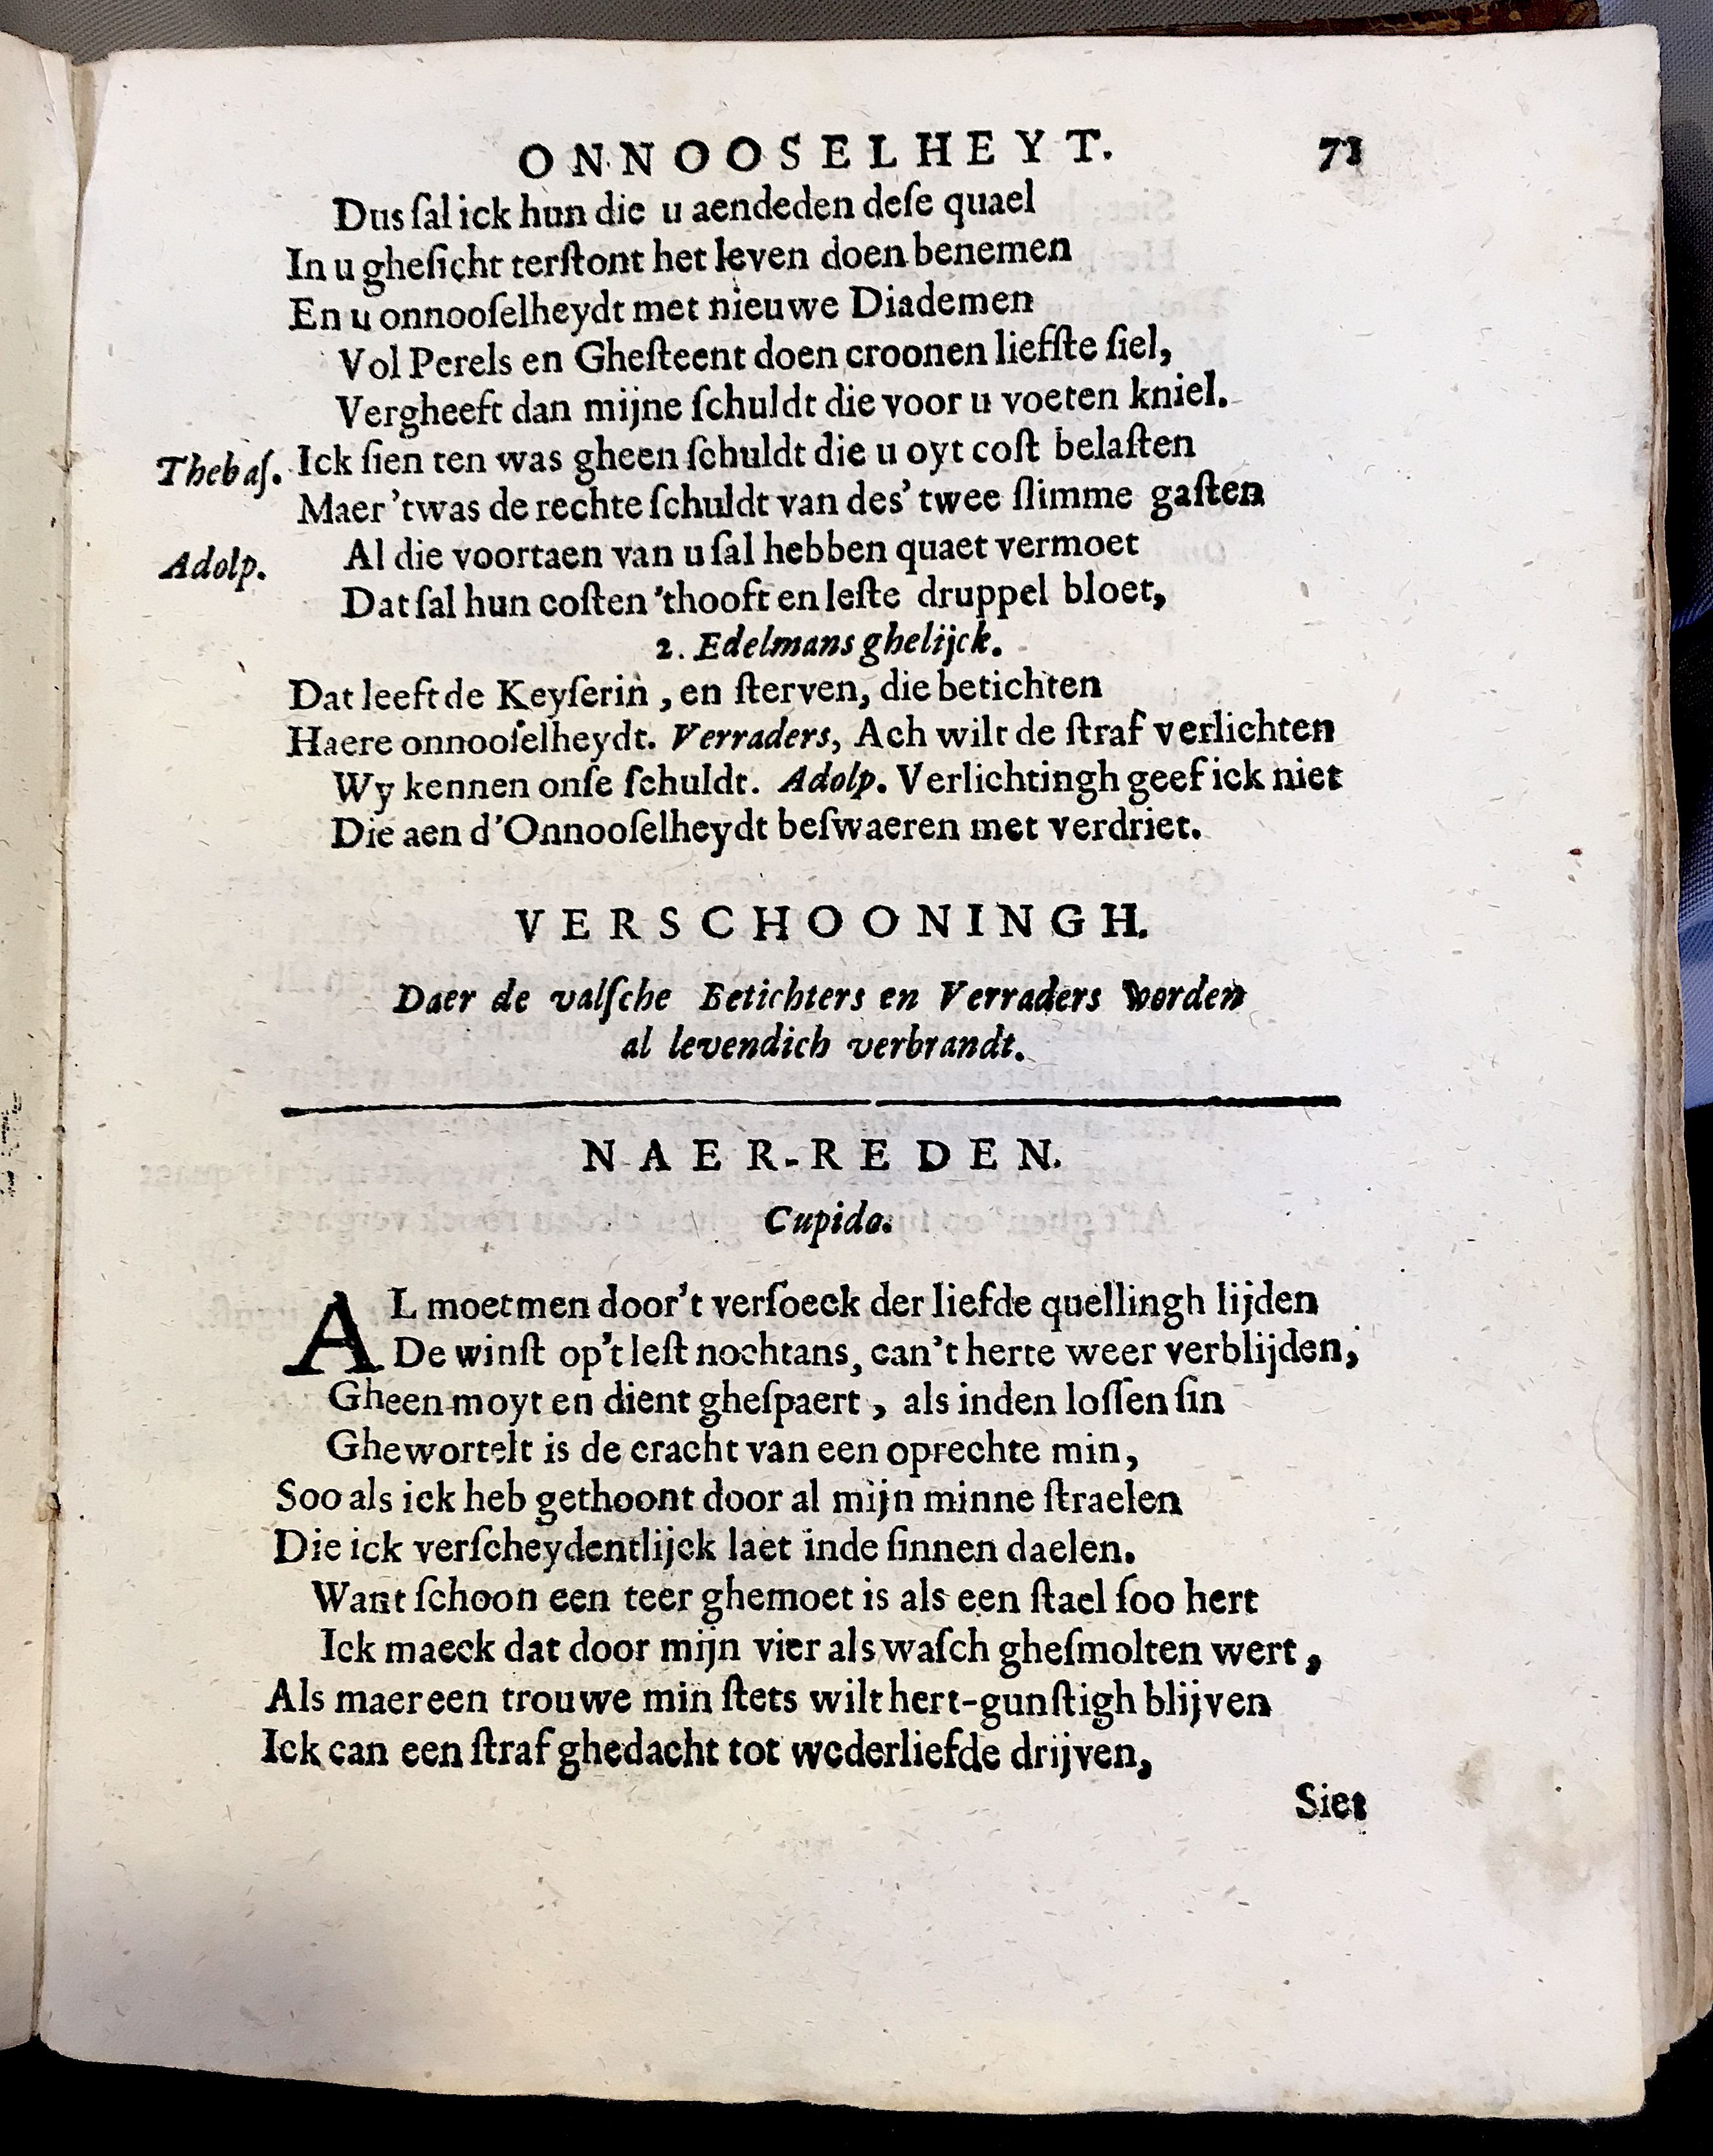 ONNOOSELHEYT. 71
Dus ſal ick hun die u aendeden deſe quael
In u gheſicht terſtont het leven doen benemen
En u onnooſelheydt met nieuwe Diademen
Vol Perels en Gheſteent doen croonen liefſte ſiel,
Vergheeft dan mijne ſchuldt die voor u voeten kniel.
Thebaſ. Ick ſien ten was gheen ſchuldt die u oyt coſt belaſten
Maer 'twas de rechte ſchuldt van des' twee ſlimme gaſten
Adolp. Al die voortaen van u ſal hebben quaet vermoet
Dat ſal hun coſten 'thooft en leſte druppel bloet,
2. Edelmans ghelijck.
Dat leeft de Keyſerin, en ſterven, die betichten
Haere onnooſelheydt. Verraders, Ach wilt de ſtraf verlichten
Wy kennen onſe ſchuldt. Adolp. Verlichtingh geef ick niet
Die aen d'Onnooſelheydt beſwaeren met verdriet.
VERSCHOONINGH.
Daer de valſche Betichters en Verraders worden
al levendich verbrandt.
NAER-REDEN.
Cupido.
AL moetmen door't verſoeck der liefde quellingh lijden
De winſt op't leſt nochtans, can't herte weer verblijden,
Gheen moyt en dient gheſpaert, als inden loſſen ſin
Ghewortelt is de cracht van een oprechte min,
Soo als ick heb gethoont door al mijn minne ſtraelen
Die ick verſcheydentlijck laet inde ſinnen daelen.
Want ſchoon een teer ghemoet is als een ſtael ſoo hert
Ick maeck dat door mijn vier als waſch gheſmolten wert,
Als maer een trouwe min ſtets wilt hert-gunſtigh blijven
Ick can een ſtraf ghedacht tot wederliefde drijven,
Siet